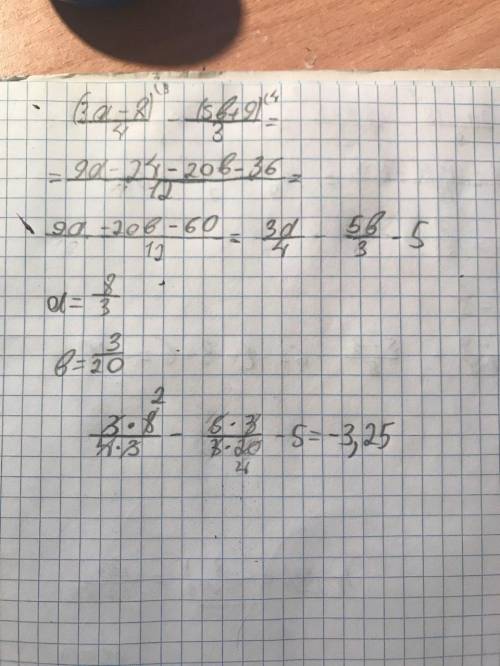 (3a-8)⁽³/4 - (5b+9)⁽⁴/3 =
= 9a-24-20b-36/12 =
9a-20b-60/12 = 3a/4 - 5b/3 - 5
a = 8/3
b = 3/20
3·8/4·3 - 5·3/3·20 - 5 = -3,25
2
4